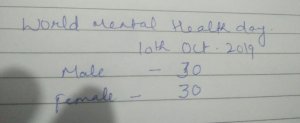 World Mental Health day.
10th Oct. 2019
Male - 30
Female - 30